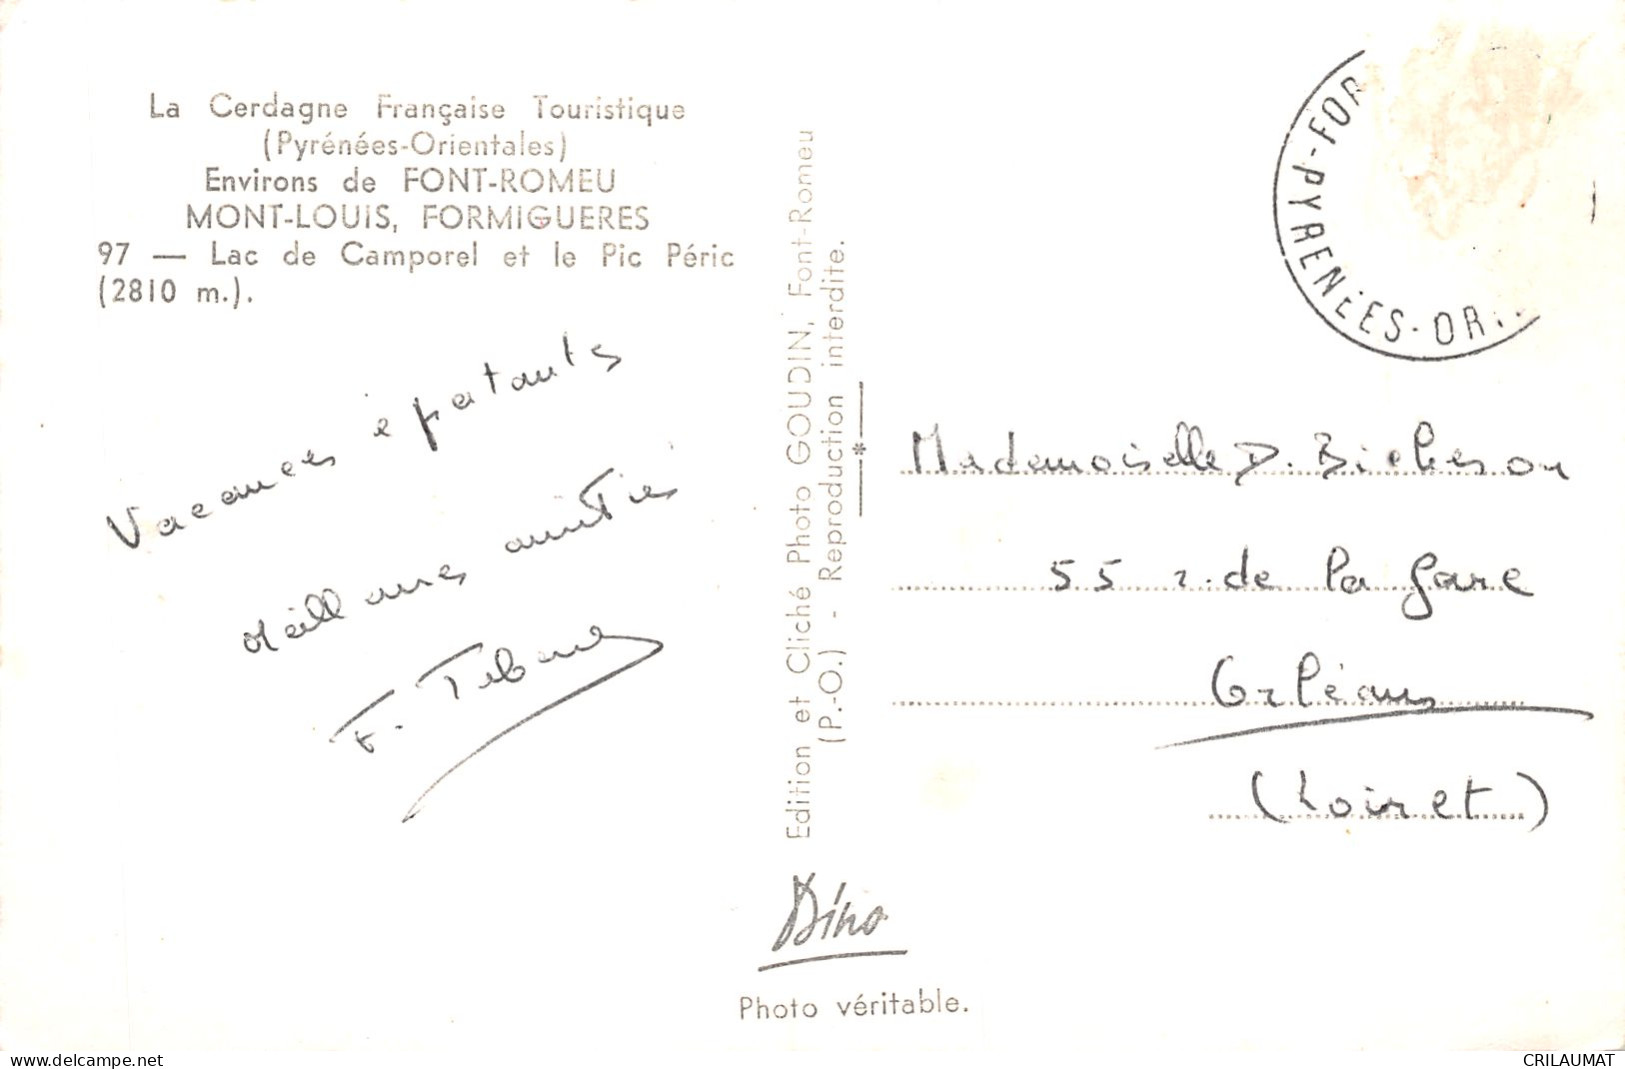 La Cerdagne Française Touristique
(Pyrénées-Orientales)
Environs de FONT-ROMEU
MONT-LOUIS, FORMIGUERES
97 — Lac de Camporel et le Pic Péric
(2810 m.).
Vacances épatantes
Meilleures amitiés
F.
Edition et Cliché Photo GOUDIN, Font-Romeu
(P.-O.) - Reproduction interdite.
PYRENÉES-OR.
Mademoiselle D. Bicheson
55 r. de la gare
Orléans
(Loiret)
Dino
Photo véritable.
www.delcampe.net
CRILAUMAT